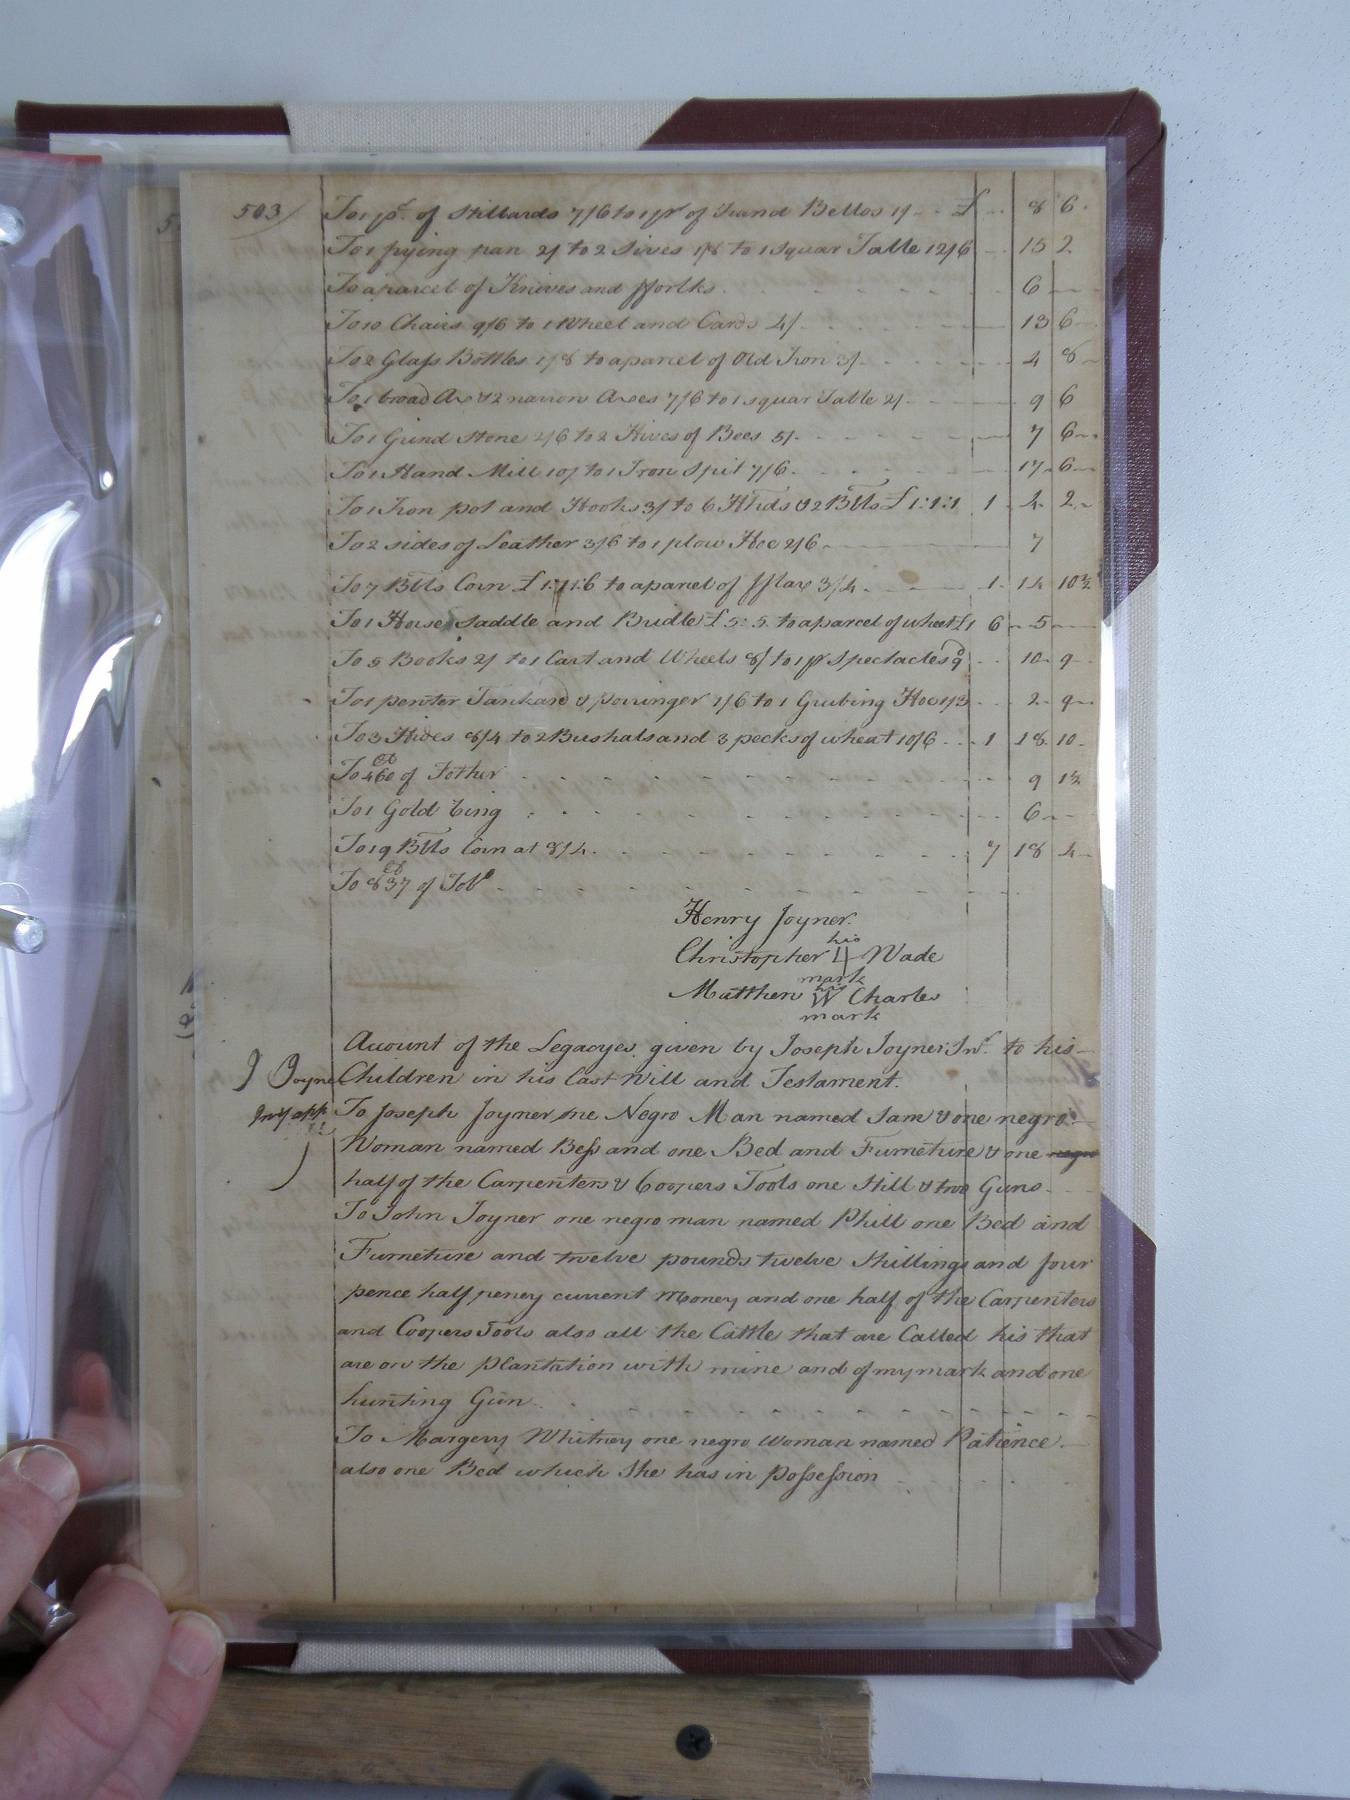 503/
To 1 pr. of Stillards 7/6 to 1 pr of hand Bellos 1/ £ 8 6
To 1 frying pan 2/ to 2 Sives 1/8 to 1 Squar Table 12/6 15 2
To a parcel of Knives and fforks 6
To 10 Chairs 9/6 to 1 Wheel and Cards 4/ 13 6
To 2 Glass Bottles 1/8 to a parcel of Old Iron 3/ 4 8
To 1 broad Ax & 2 narrow Axes 7/6 to 1 squar Table 2/ 9 6
To 1 Grind Stone 2/6 to 2 Hives of Bees 5/ 7 6
To 1 Hand Mill 10/ to 1 Iron Spit 7/6 17 6
To 1 Iron pot and Hooks 3/ to 6 Hhds & 2 Blls £1:1:1 1 4 2
To 2 sides of Leather 3/6 to 1 plow Hoe 2/6 7
To 7 Blls Corn £1:11:6 to a parcel of fflax 3/4 1 14 10½
To 1 Horse Saddle and Bridle £5:5 to a parcel of wheat £1 6 5
To 5 Books 2/ to 1 Cart and Wheels 8/ to 1 pr Spectacles 9d 10 9
To 1 penter Tankard & porringer 1/6 to 1 Grubing Hoe 1/3 2 9
To 3 Hides 8/4 to 2 Bushals and 3 pecks of wheat 10/6 1 18 10
To 460 lb of Fother 9 1½
To 1 Gold Ring 6
To 19 Blls Corn at 8/4 7 18 4
To 837 lb of Tobo
Henry Joyner
his
Christopher H Wade
mark
his
Matthew W Charles
mark
Account of the Legacyes given by Joseph Joyner Junr. to his
J Joyner Children in his last Will and Testament.
To Joseph Joyner one Negro Man named Sam & one negro
Woman named Bess and one Bed and Furneture & one negro
half of the Carpenters & Coopers Tools one Still & two Guns
To John Joyner one negro man named Phill one Bed and
Furneture and twelve pounds twelve Shillings and four
pence half peney current Money and one half of the Carpenters
and Coopers Tools also all the Cattle that are Called his that
are on the plantation with mine and of my mark and one
hunting Gun
To Margery Whitney one negro woman named Patience
also one Bed which She has in possession